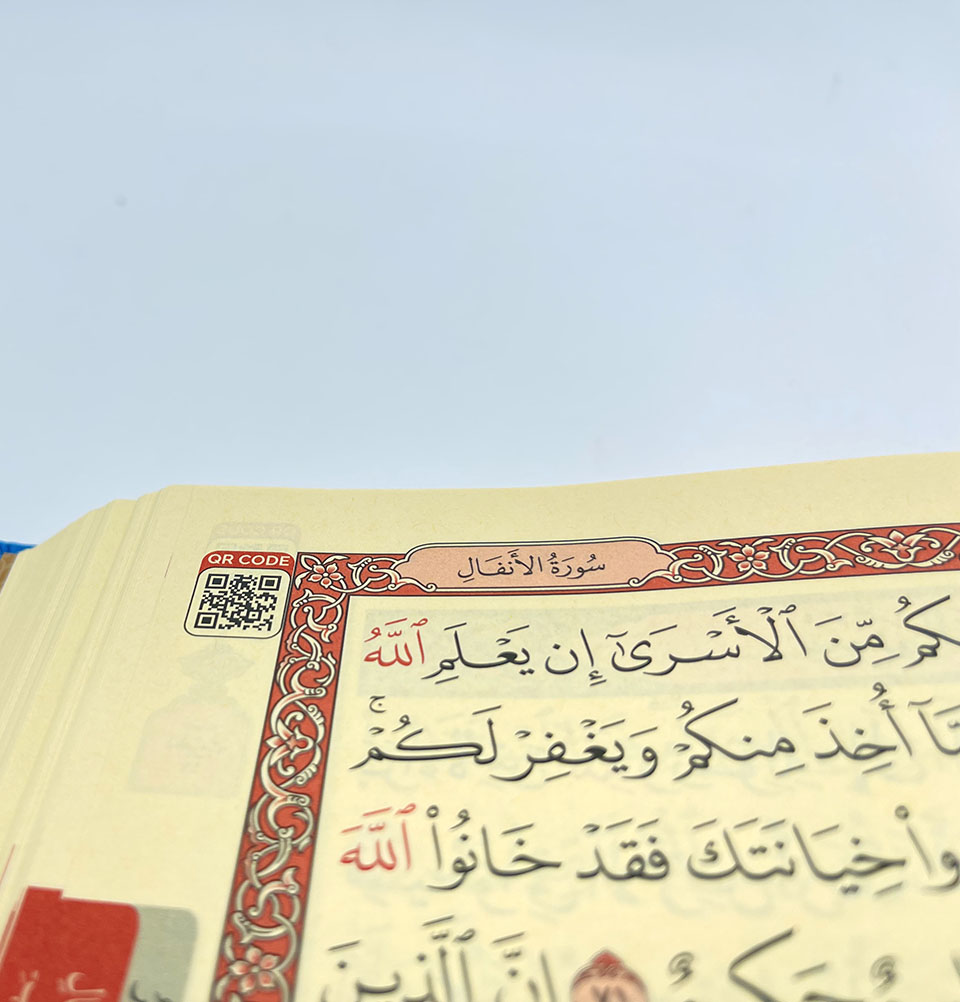 QR CODE
سُورَةُ الأَنفَالِ
مِّنَ ٱلْأَسْرَىٰٓ إِن يَعْلَمِ ٱللَّهُ
أُخِذَ مِنكُمْ وَيَغْفِرْ لَكُمْ ۚ
خِيَانَتَكَ فَقَدْ خَانُوا۟ ٱللَّهَ
٧١ إِنَّ ٱلَّذِينَ